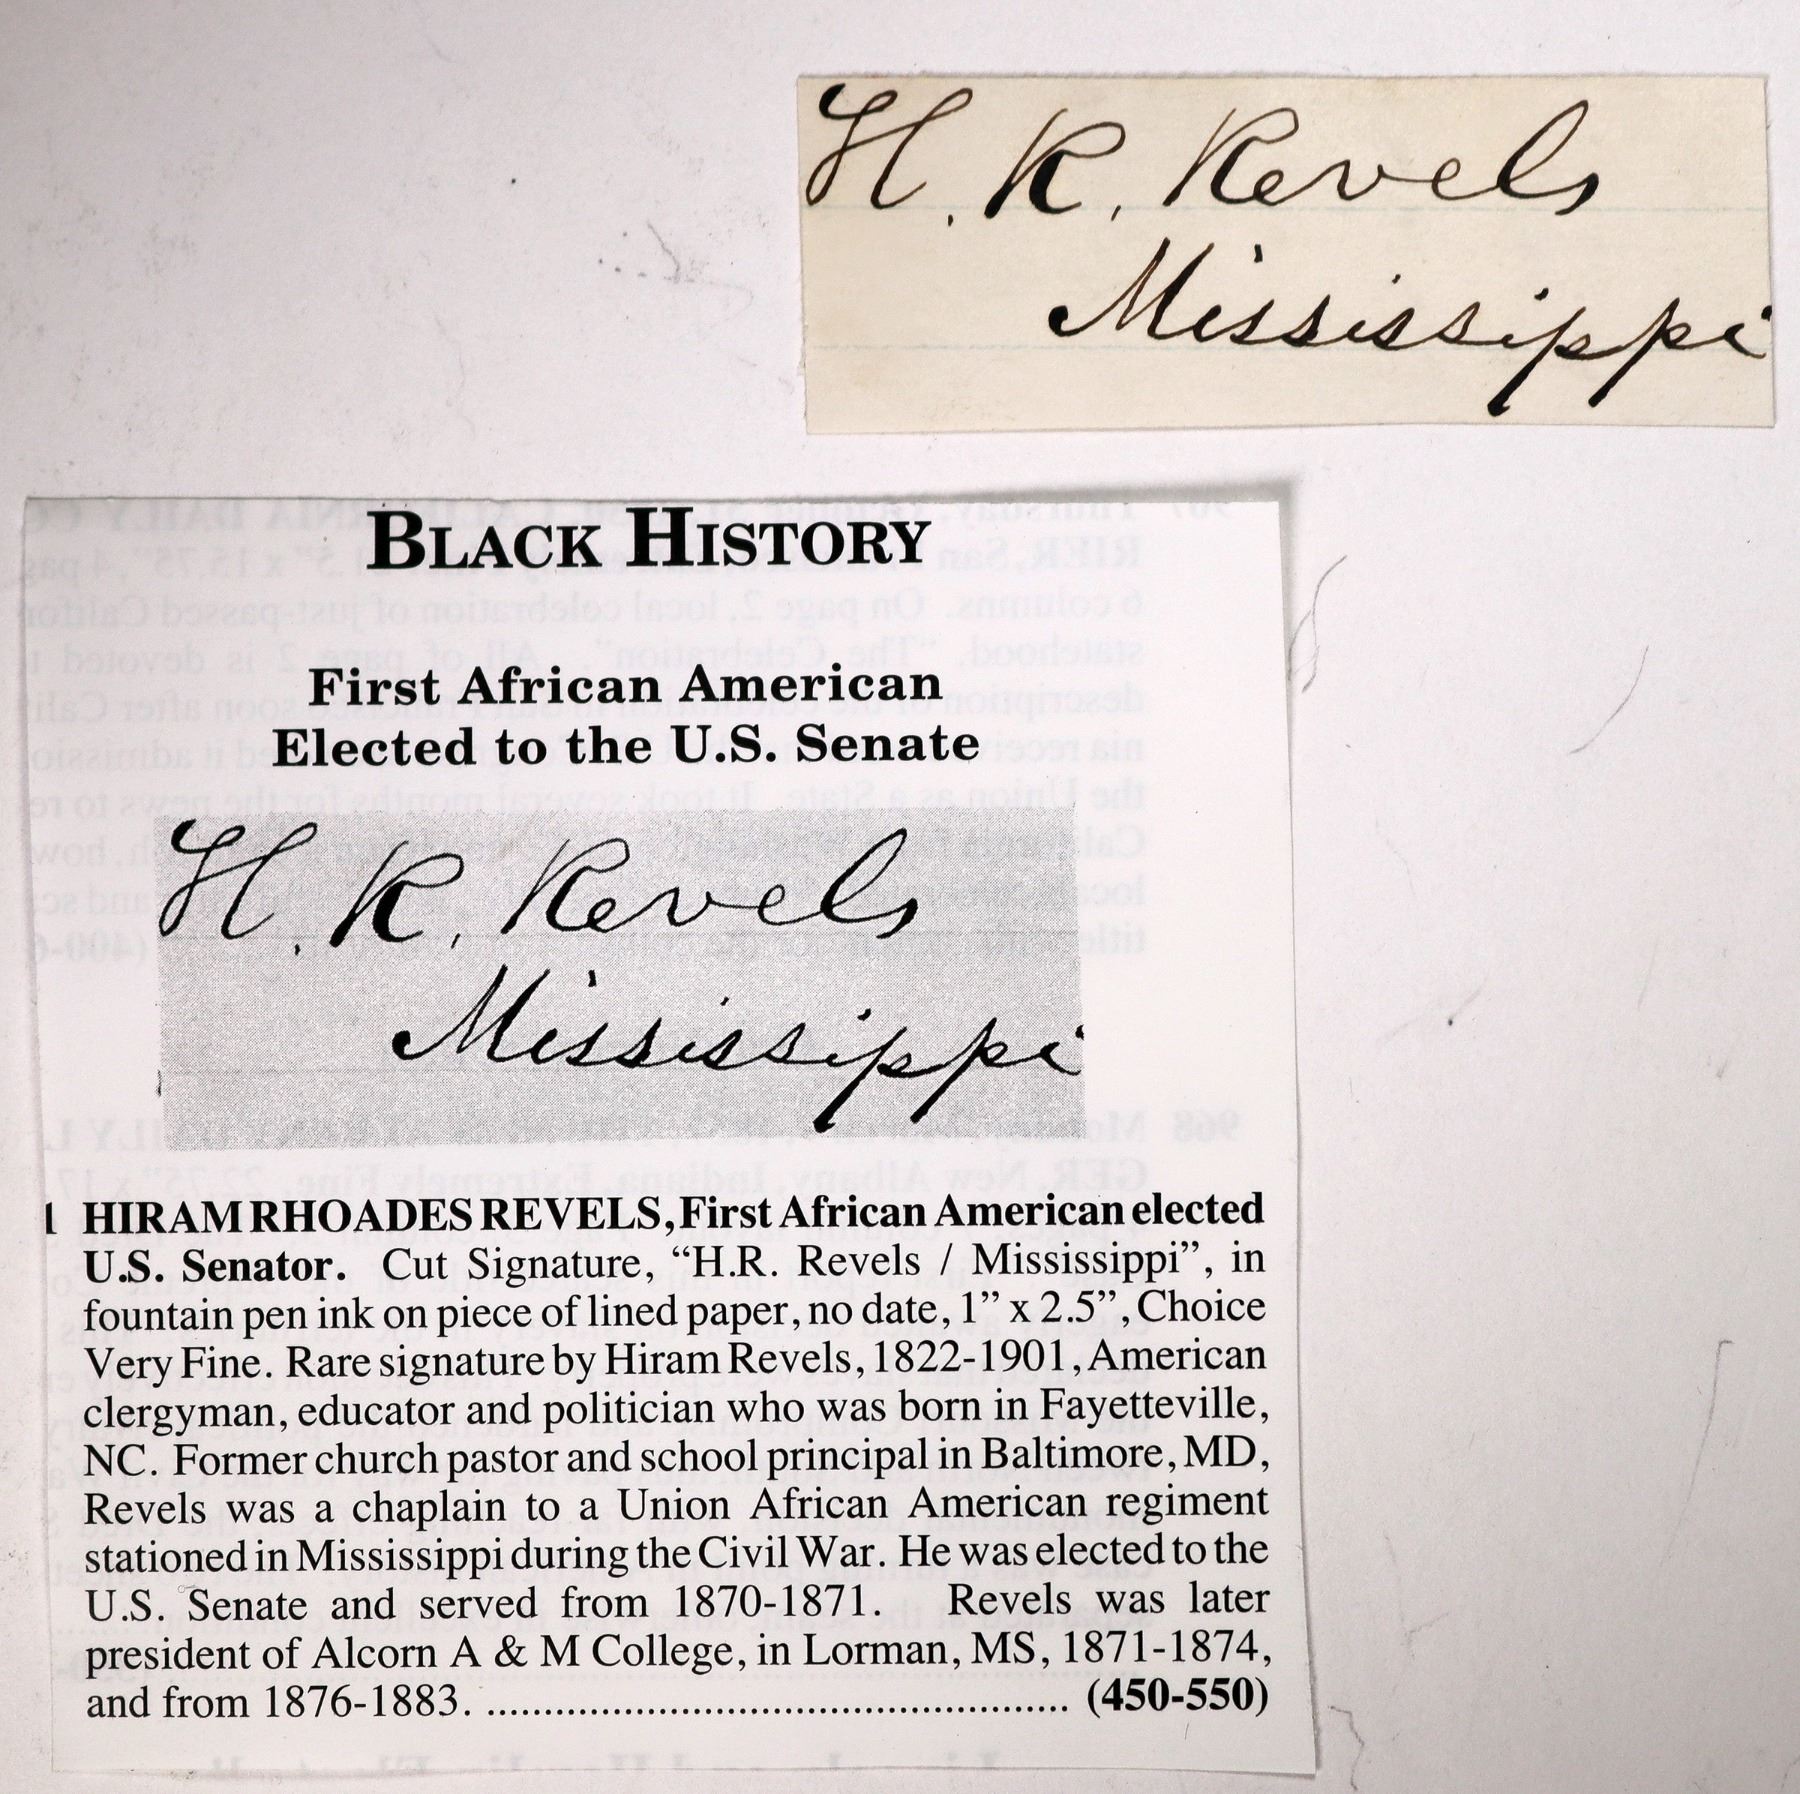 H. R. Revels
Mississippi
BLACK HISTORY
First African American
Elected to the U.S. Senate
H. R. Revels
Mississippi
1 HIRAM RHOADES REVELS, First African American elected
U.S. Senator. Cut Signature, “H.R. Revels / Mississippi”, in
fountain pen ink on piece of lined paper, no date, 1” x 2.5”, Choice
Very Fine. Rare signature by Hiram Revels, 1822-1901, American
clergyman, educator and politician who was born in Fayetteville,
NC. Former church pastor and school principal in Baltimore, MD,
Revels was a chaplain to a Union African American regiment
stationed in Mississippi during the Civil War. He was elected to the
U.S. Senate and served from 1870-1871. Revels was later
president of Alcorn A & M College, in Lorman, MS, 1871-1874,
and from 1876-1883. ................................................ (450-550)